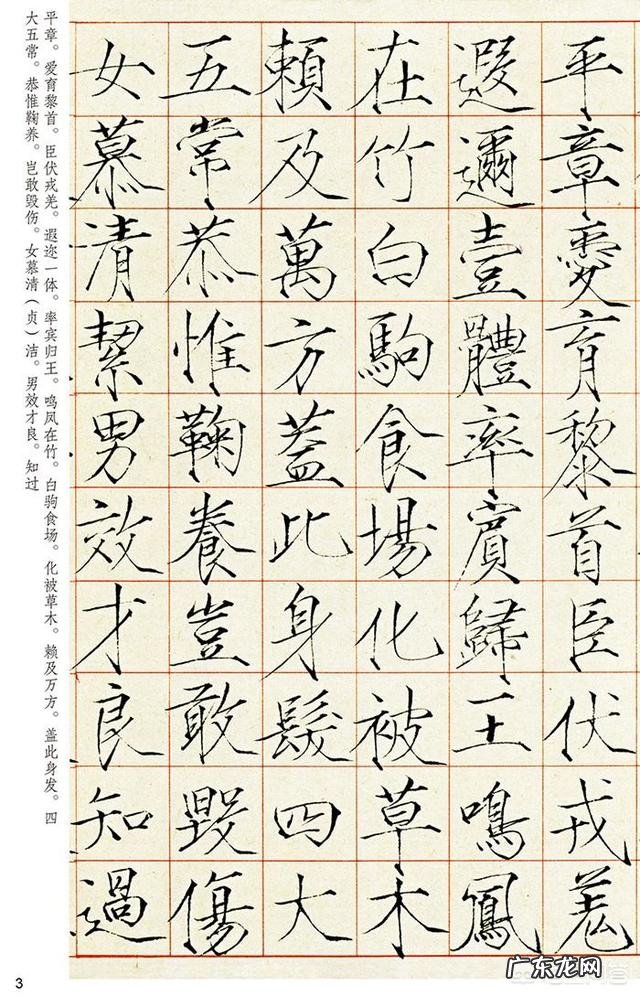 平章愛育黎首臣伏戎羌
遐邇壹體率賓歸王鳴鳳
在竹白駒食場化被草木
賴及萬方蓋此身髮四大
五常恭惟鞠養豈敢毀傷
女慕清絜男效才良知過
平章。爱育黎首。臣伏戎羌。遐迩一体。率宾归王。鸣凤在竹。白驹食场。化被草木。赖及万方。盖此身发。四
大五常。恭惟鞠养。岂敢毁伤。女慕清（贞）洁。男效才良。知过
3
广东龙网